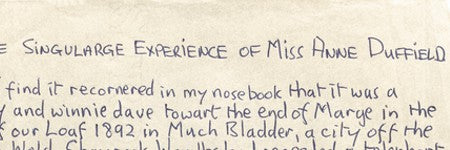 E SINGULARGE EXPERIENCE OF MISS ANNE DUFFIELD
find it recornered in my nosebook that it was a
and winnie dave towart the end of Marge in the
our Loaf 1892 in Much Bladder, a city off the